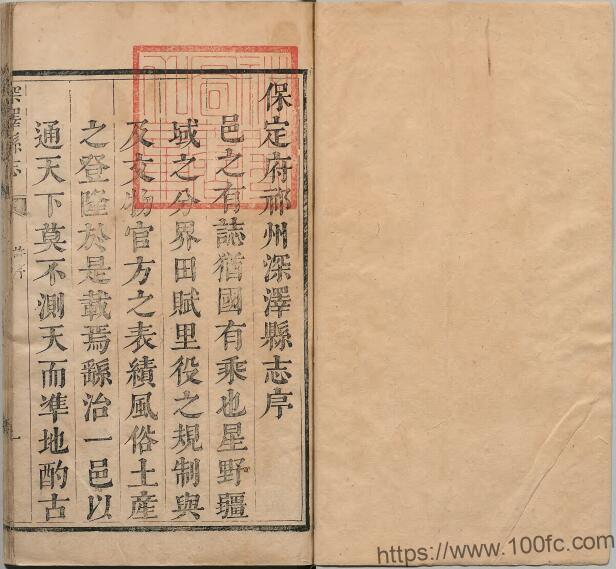 保定府祁州深澤縣志序
邑之有誌猶國有乘也星野疆
域之分界田賦里役之規制與
及文物官方之表績風俗土產
之登隆於是載焉繇治一邑以
通天下莫不測天而準地酌古
深澤縣志
序
https://www.100fc.com